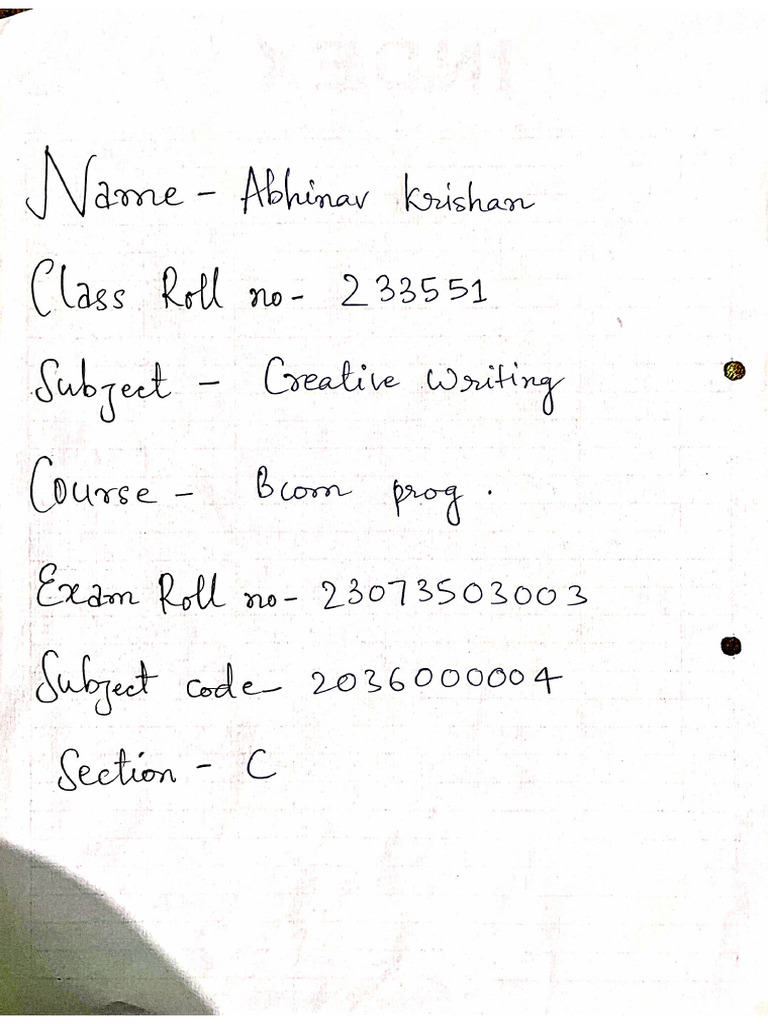 Name - Abhinav Krishan
Class Roll no - 233551
Subject - Creative Writing
Course - Bcom prog.
Exam Roll no - 23073503003
Subject code - 2036000004
Section - C